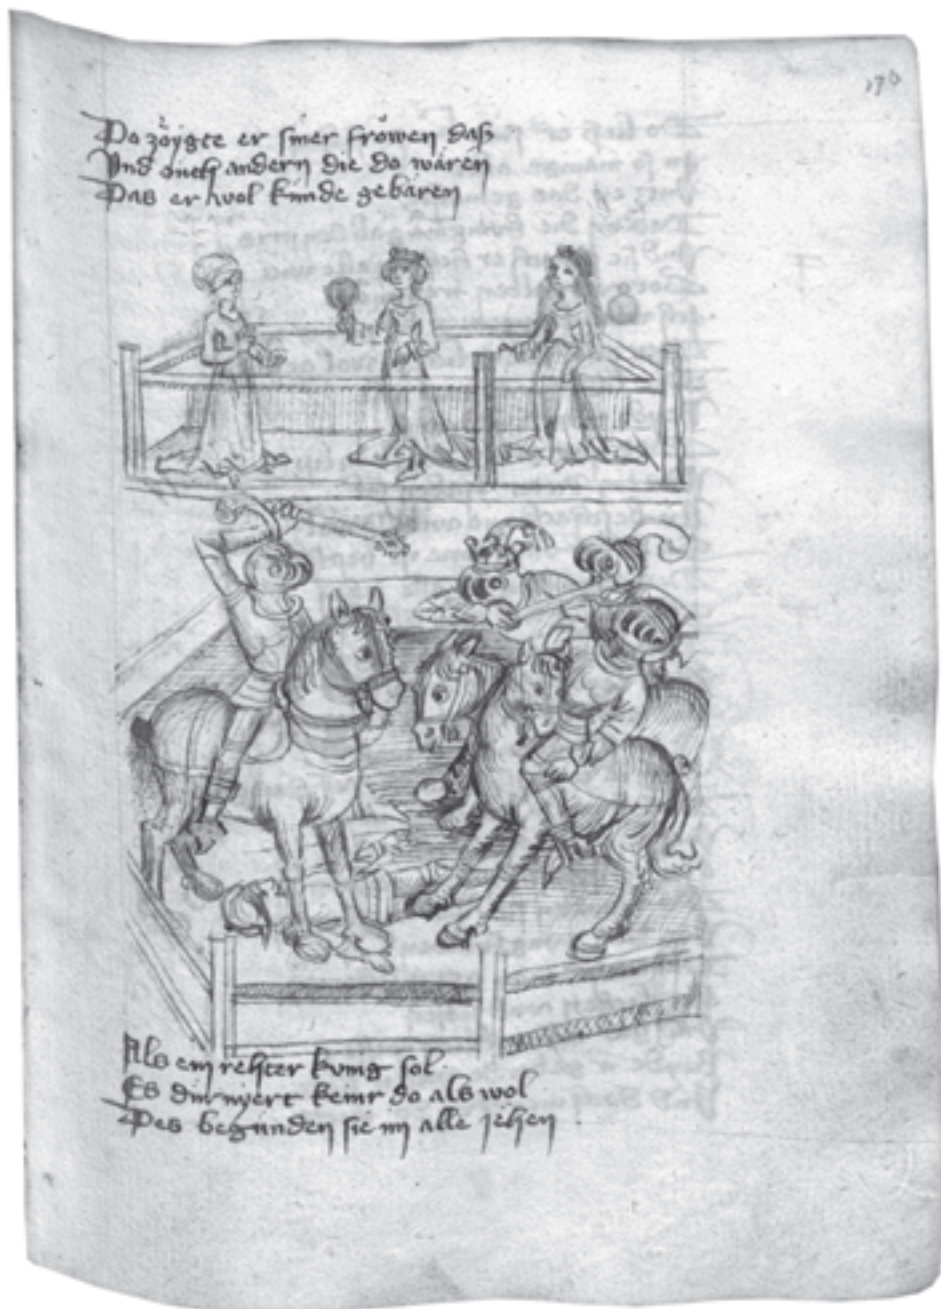 170
Do zöigte er siner fröwen daß
Vnd öuch andern die do wären
Das er wol kunde gebären
Als ein rehter kunig sol
Es durnyert keinr do als wol
Des begunden sie im alle jehen